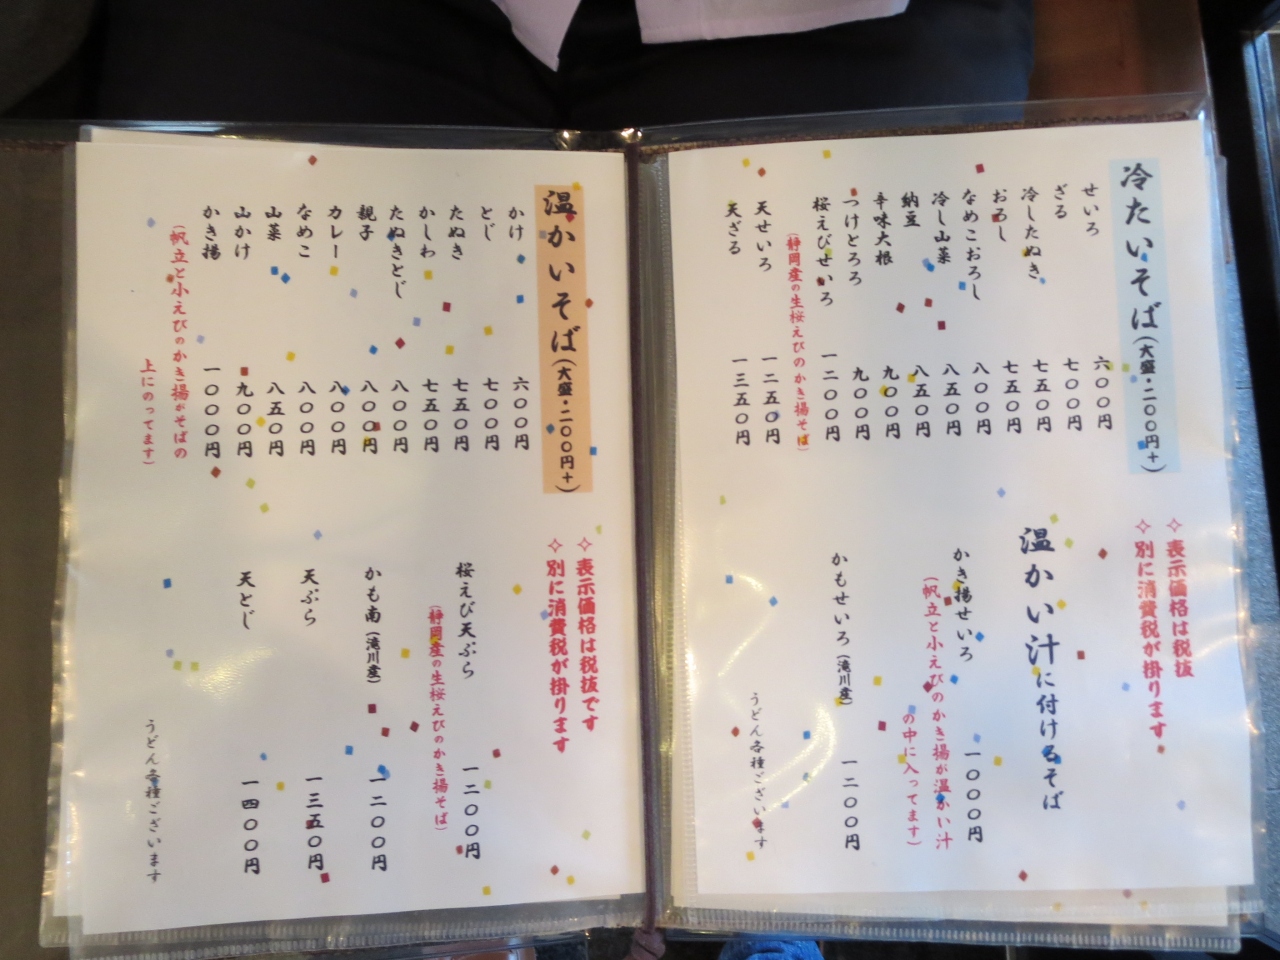 冷たいそば(大盛・二〇〇円+)
せいろ 六〇〇円
ざる 七〇〇円
冷したぬき 七五〇円
おろし 七五〇円
なめこおろし 八〇〇円
冷し山菜 八五〇円
納豆 八五〇円
辛味大根 九〇〇円
つけとろろ 九〇〇円
桜えびせいろ 一二〇〇円
(静岡産の生桜えびのかき揚そば)
天せいろ 一二五〇円
天ざる 一三五〇円
✧表示価格は税抜
✧別に消費税が掛ります
温かい汁に付けるそば
かき揚せいろ 一〇〇〇円
(帆立と小えびのかき揚が温かい汁
の中に入ってます)
かもせいろ(滝川産) 一二〇〇円
うどん各種ございます
温かいそば(大盛・二〇〇円+)
かけ 六〇〇円
とじ 七〇〇円
たぬき 七五〇円
かしわ 七五〇円
たぬきとじ 八〇〇円
親子 八〇〇円
カレー 八〇〇円
なめこ 八〇〇円
山菜 八五〇円
山かけ 九〇〇円
かき揚 一〇〇〇円
(帆立と小えびのかき揚がそばの
上にのってます)
✧表示価格は税抜です
✧別に消費税が掛ります
桜えび天ぷら 一二〇〇円
(静岡産の生桜えびのかき揚そば)
かも南(滝川産) 一二〇〇円
天ぷら 一三五〇円
天とじ 一四〇〇円
うどん各種ございます